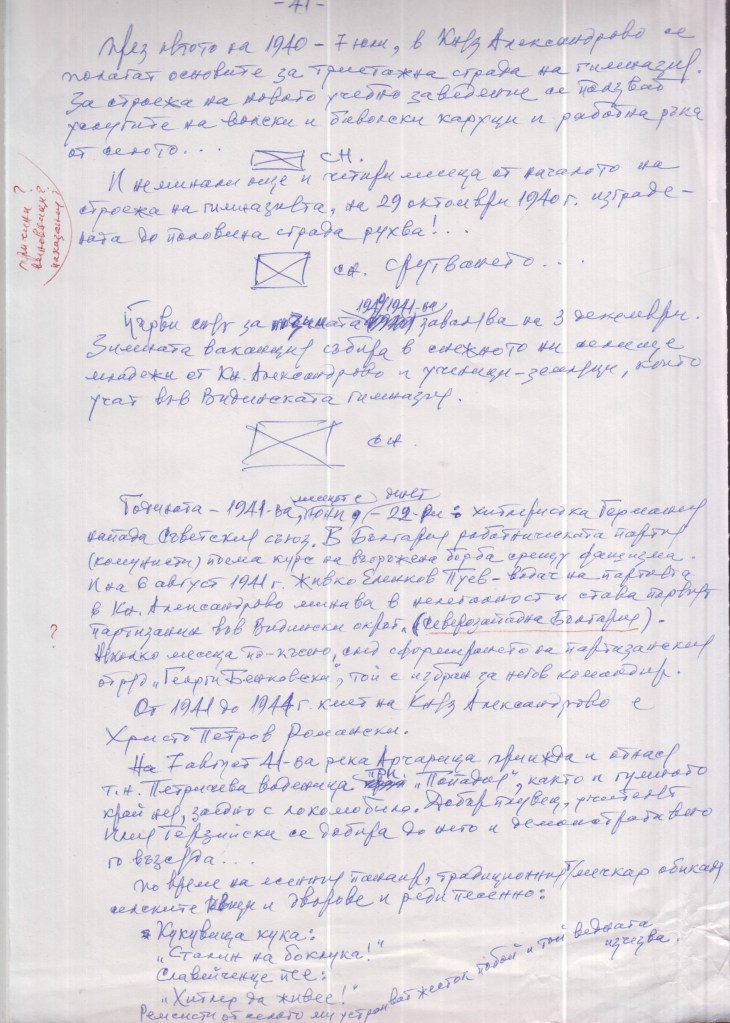 - 41 -
През лятото на 1940 - 7 юли, в Княз Александрово се
полагат основите за триетажна страда на гимназия.
За строежа на новото учебно заведение се ползват
услугите на волски и биволски каруци и работна ръка
от селото...
сн.
И неминали още и четири месеца от началото на
строежа на гимназията, на 29 октомври 1940 г. изграде-
ната до половина страда рухва!...
причини?
виновници?
наказание
сн. Срутването...
Първи сняг за зимата 1940/1941-ва завалява на 3 декември.
Зимната ваканция събира в снежното ни селище
младежи от Кн. Александрово и ученици-земляци, които
учат във Видинската гимназия.
сн.
Годината - 1941-ва, месецът е юни, денят - 22-ри: хитлеристка Германия
напада Советския съюз. В България работническата партия
(комунисти) поема курс на въоръжена борба срещу фашизма.
И на 6 август 1941 г. Живко Еленков Пуев - водач на партията
в Кн. Александрово минава в нелегалност и става първият
партизанин във Видински окръг, (Северозападна България).
?
Няколко месеца по-късно, след сформирането на партизанския
отряд "Георги Бенковски", той е избран за негов командир.
От 1941 до 1944 г. кмет на Княз Александрово е
Христо Петров Романски.
На 7 август 41-ва река Арчарица приижда и отнася
т.н. Петричева воденица при "Попадия", както и гумното
край нея, заедно с локомобила. Добър плувец, учителят
Илия Терзийски се добира до него и демонстративно
го възсяда...
По време на есенния панаир, традиционният мечкар обикаля
селските къщи и дворове и реди песенно:
Кукувица кука:
"Сталин на боклука!"
Славейченце пее:
"Хитлер да живее!"
Ремсисти от селото му устройват жесток побой и той веднага
изчезва.